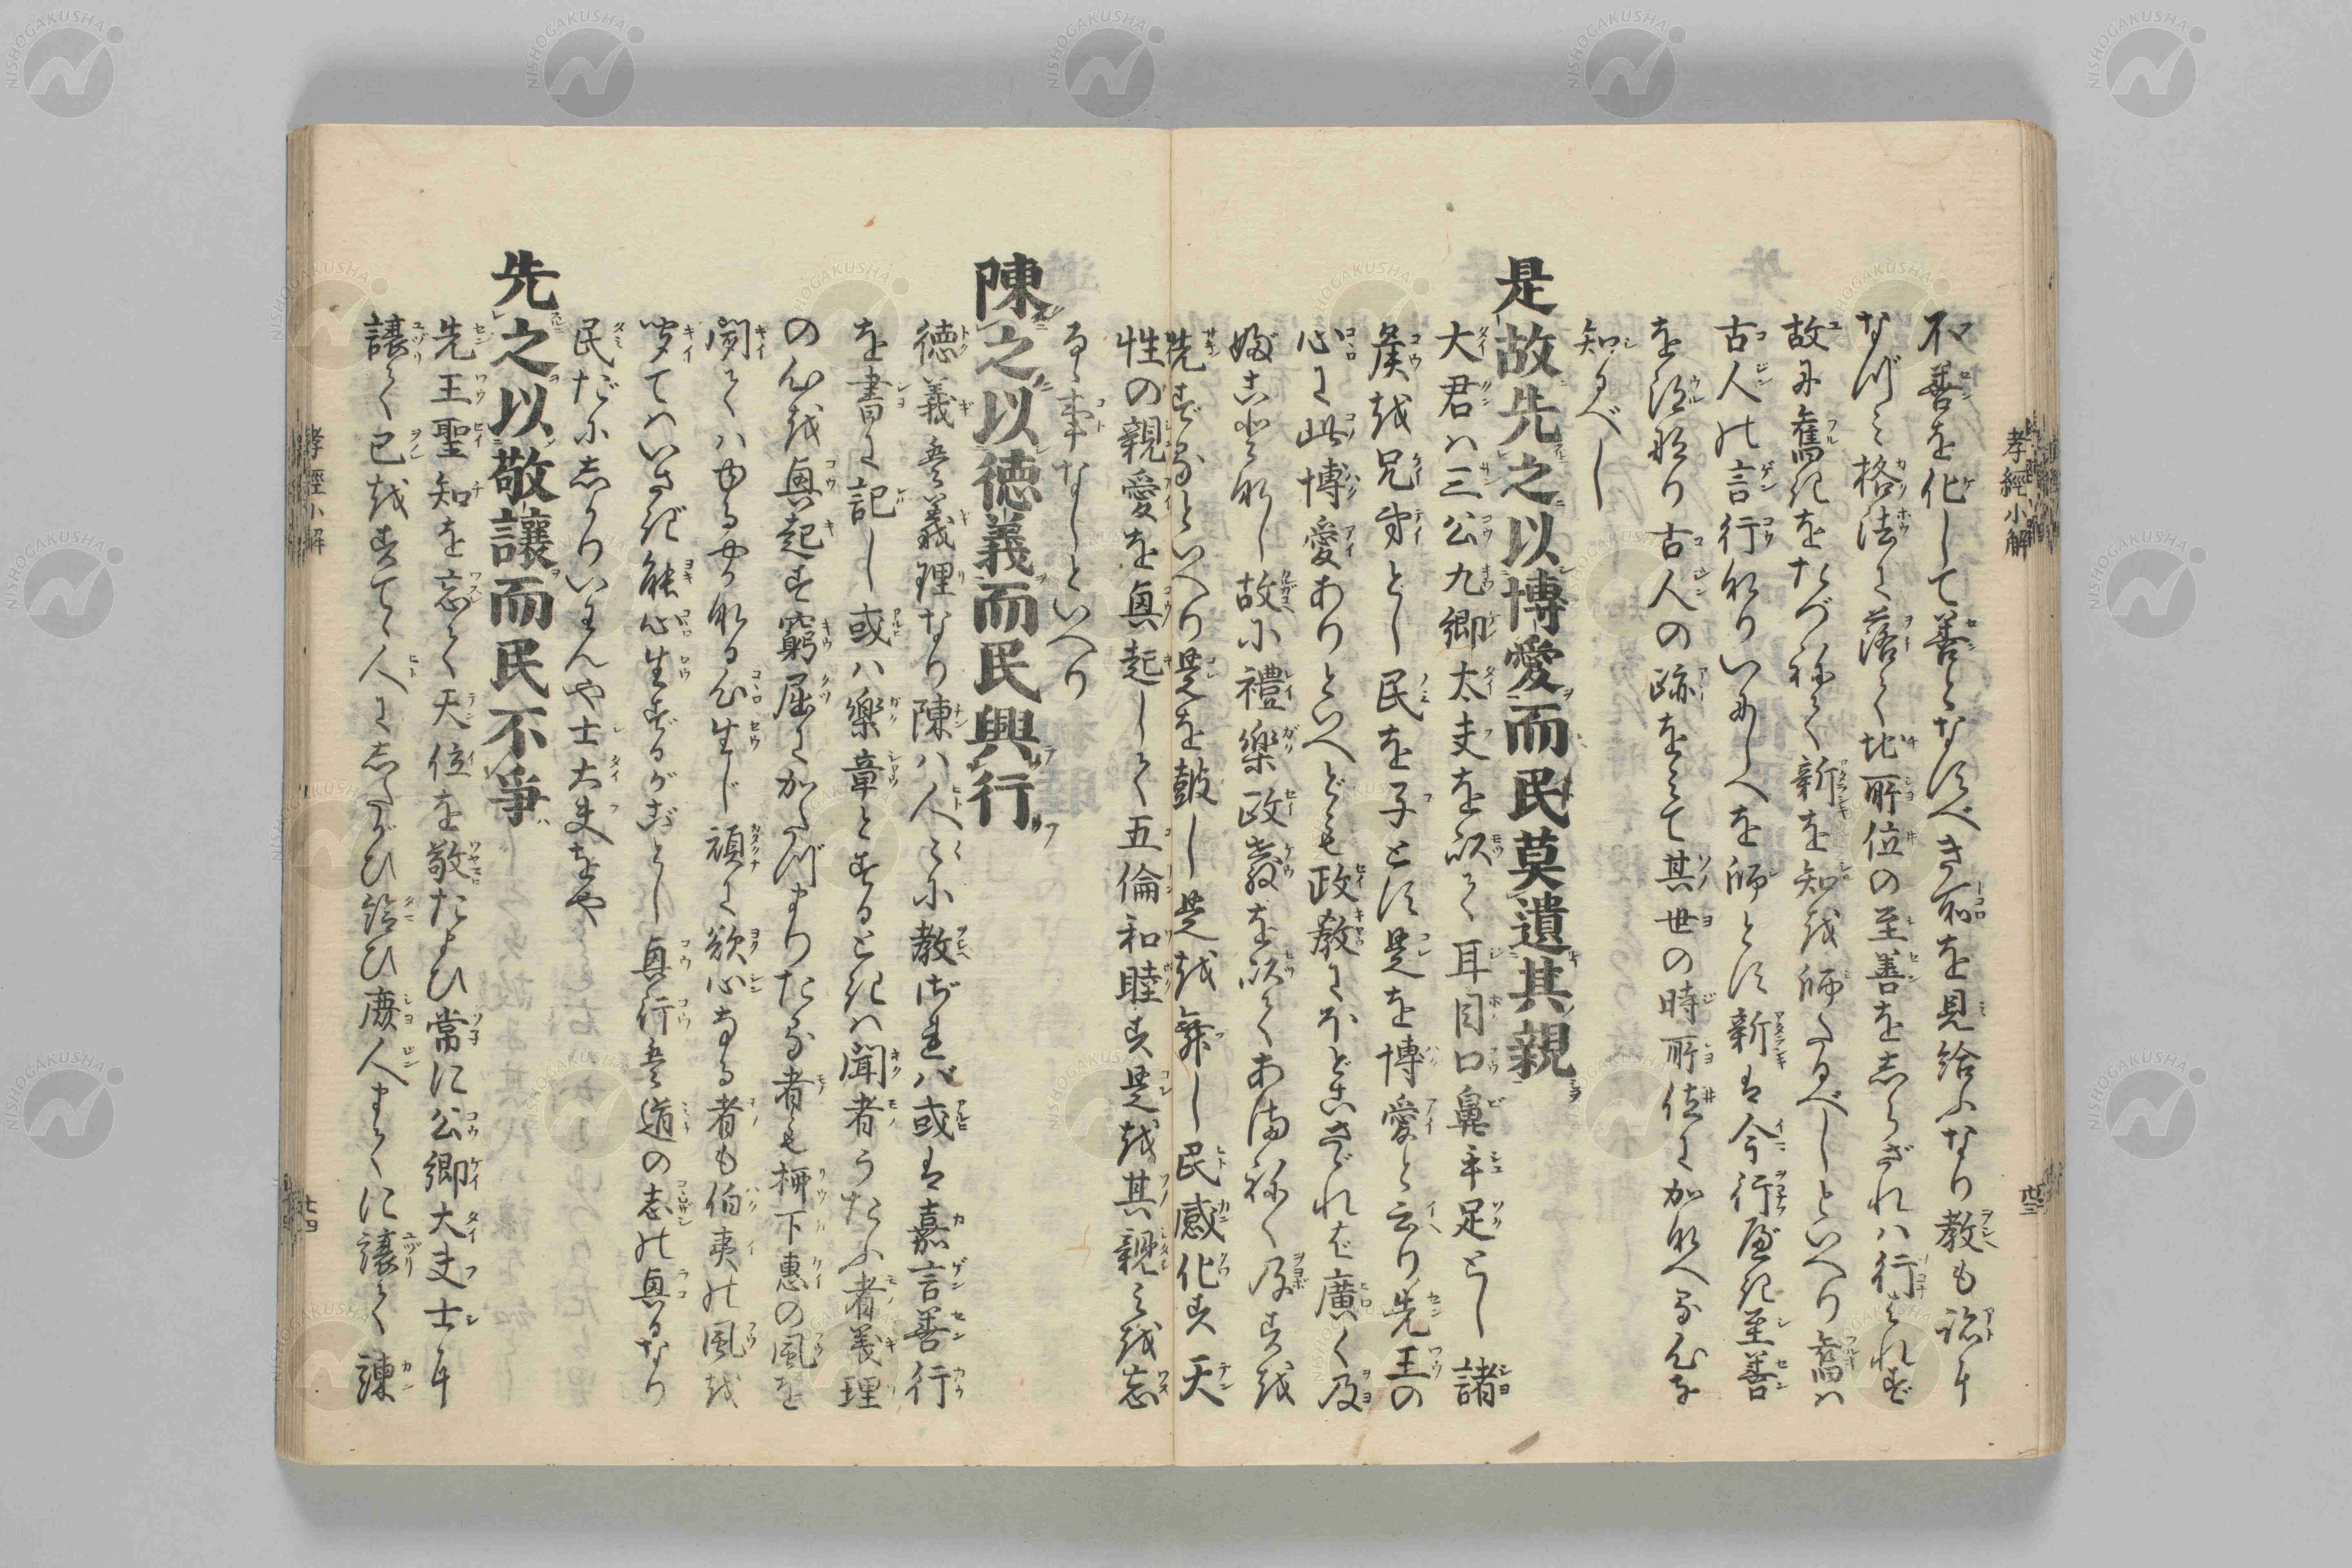 不善を化して善となすべき所を見給ふなり教も迹に
なづみ格法に落て此所位の至善をしらざれハ行はれず
故に舊きをたづねて新を知を師たるべしといへり舊ハ
古人の言行なりいにしへを師とす新は今行ふべき至善
を得なり古人の跡をみて其世の時所位にかなへる心を
知るべし
是故先之以博愛而民莫遺其親
大君ハ三公九卿太夫を以て耳目口鼻手足とし諸
侯を兄弟とし民を子とす是を博愛と云り先王の
心に此博愛ありといへども政教にほどこさゞれば廣く及
故に禮樂政教を以てあまねく及すを
先ずるといへり是を鼓し是を舞し民感化す天
性の親愛を興起して五倫和睦す是を其親を忘
るゝ事なしといへり
陳之以德義而民興行
德義ハ義理なり陳ハ人〻に教ゆれバ或は嘉言善行
を書に記し或ハ樂章とするときハ聞者うたふ者義理
の心を興起す窮屈にかたづまりたる者も柳下惠の風を
聞てハゆるやかなる心生じ頑に欲心なる者も伯夷の風を
聞てハいさぎ能心生ずるがごとし興行ハ道の志の興るなり
民だにしかりいはんや士大夫をや
先之以敬讓而民不爭
先王聖知を忘て天位を敬たまひ常に公卿大夫士に
讓て己をすてゝ人にしたがひ給ひ庶人までに讓て諫
孝經小解
孝經小解